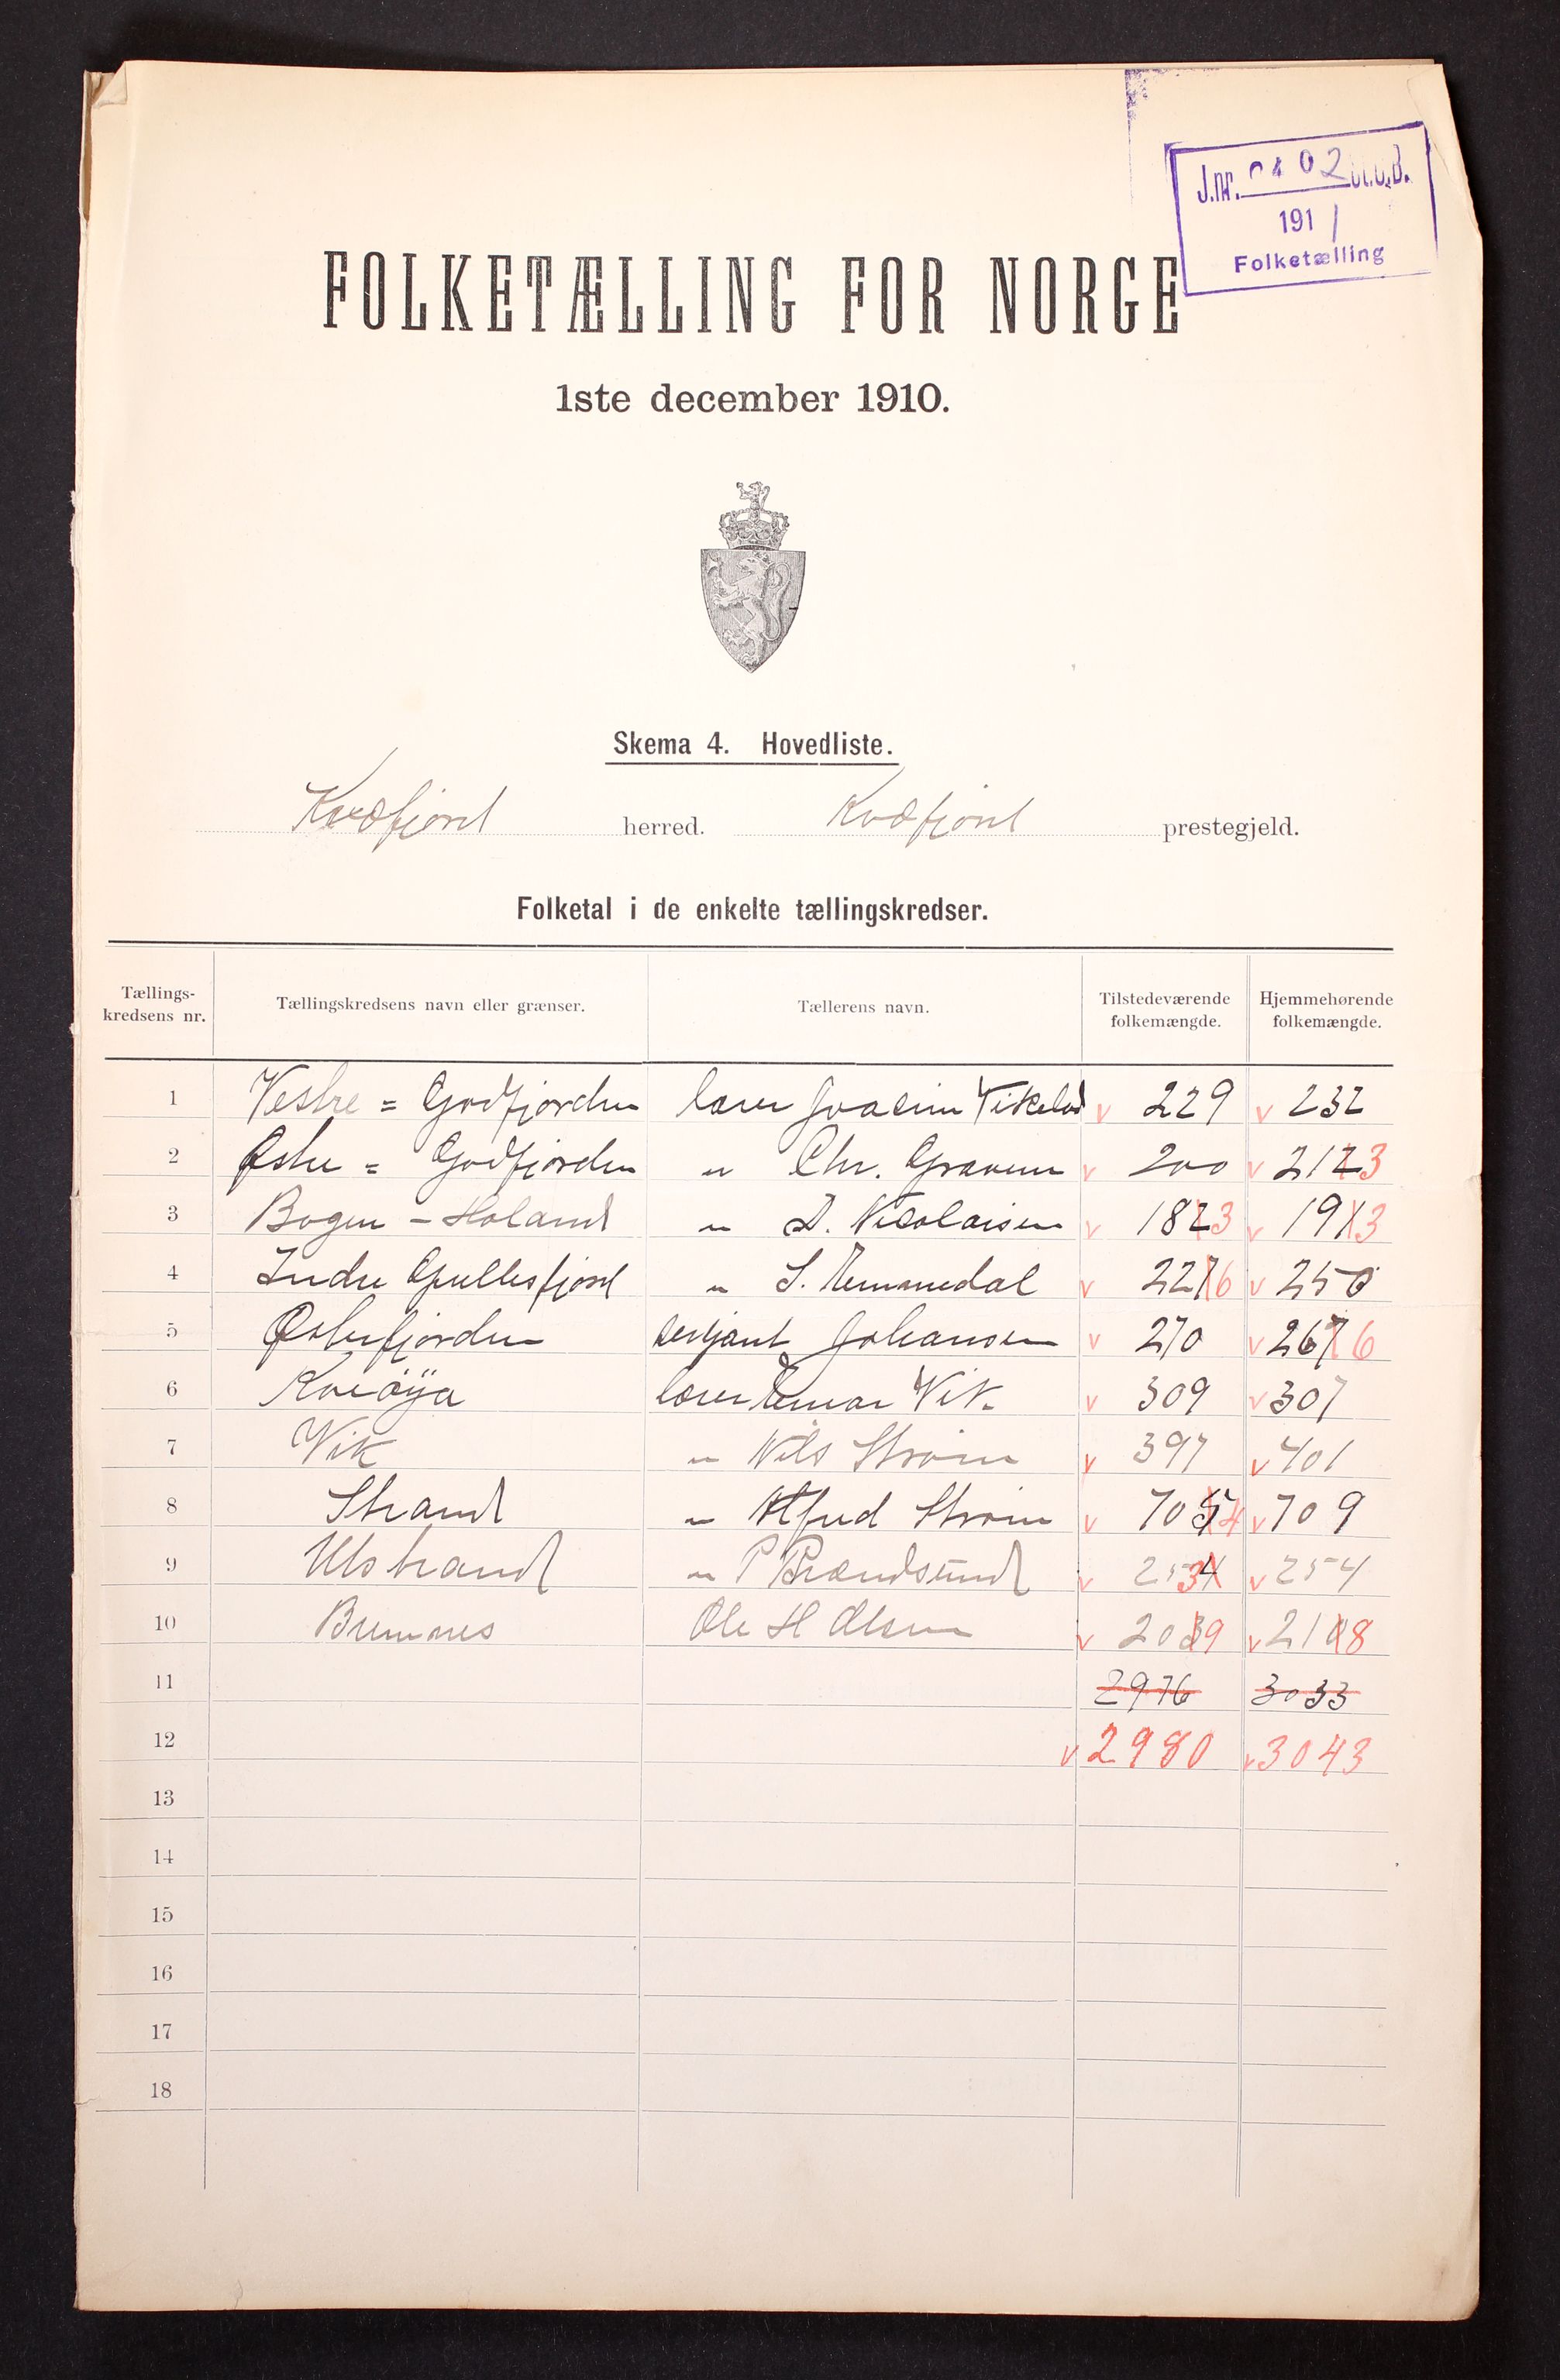 J.nr. 0402 St.C.B.
1911
Folketælling
FOLKETÆLLING FOR NORGE
1ste december 1910.
Skema 4. Hovedliste.
Kvæfjord herred. Kvæfjord prestegjeld.
Folketal i de enkelte tællingskredser.
Tællings-kredsens nr. Tællingskredsens navn eller grænser. Tællerens navn. Tilstedeværende folkemængde. Hjemmehørende folkemængde.
1 Vestre = Godfjorden lærer Joacim v 229 v 232
2 Østre = Godfjorden " Chr. v 200 v 2123
3 Bogen - Holand " D. Nicolaisen v 1823 v 1913
4 Indre Gullesfjord " S. Remmedal v 2276 v 250
5 Østerfjorden serjant Johansen v 270 v 2676
6 Kveøya lærer Einar Vik. v 309 v 307
7 Vik " Nils Strøm v 397 v 401
8 Strand " Alfred Strøm v 7054 v 709
9 Utstrand " P Brændsund v 2534 v 254
10 Bremnes Ole H Olsen v 2039 v 2108
11 2976 3033
12 v 2980 v 3043
13
14
15
16
17
18